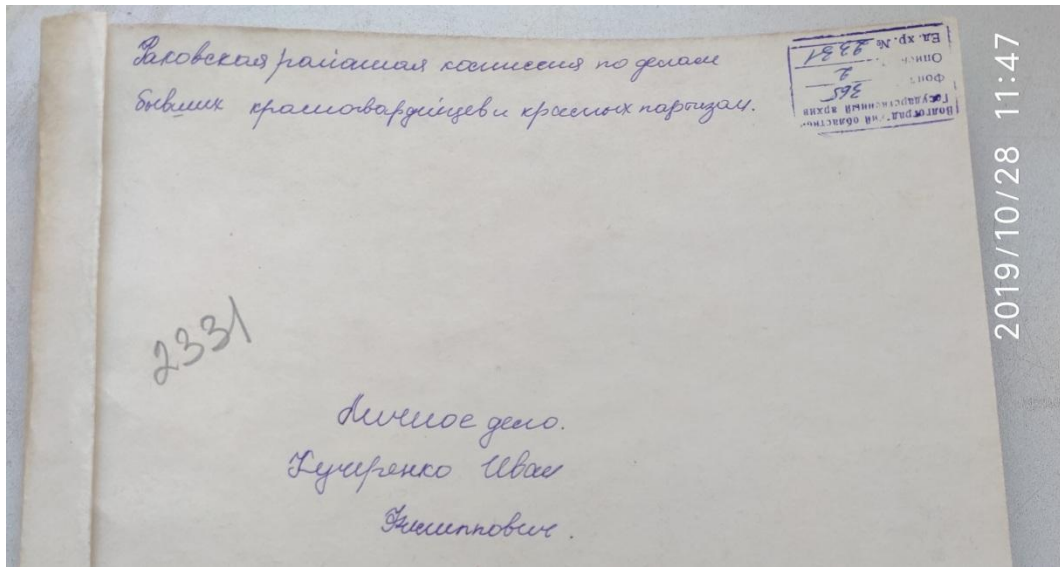 Раковская районная комиссия по делам
бывших красногвардейцев и красных партизан.
Волгоград ий областно
Государственный архив
Фонд 365
Опись 2
Ед. хр. № 2331
2331
Личное дело.
Кучеренко Иван
Филиппович.
2019/10/28 11:47